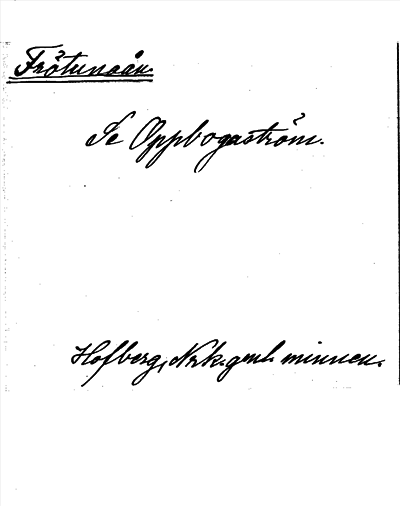 Frötunaån.
Se Oppbogaström.
Hofberg, Nrk. geml. minnen.